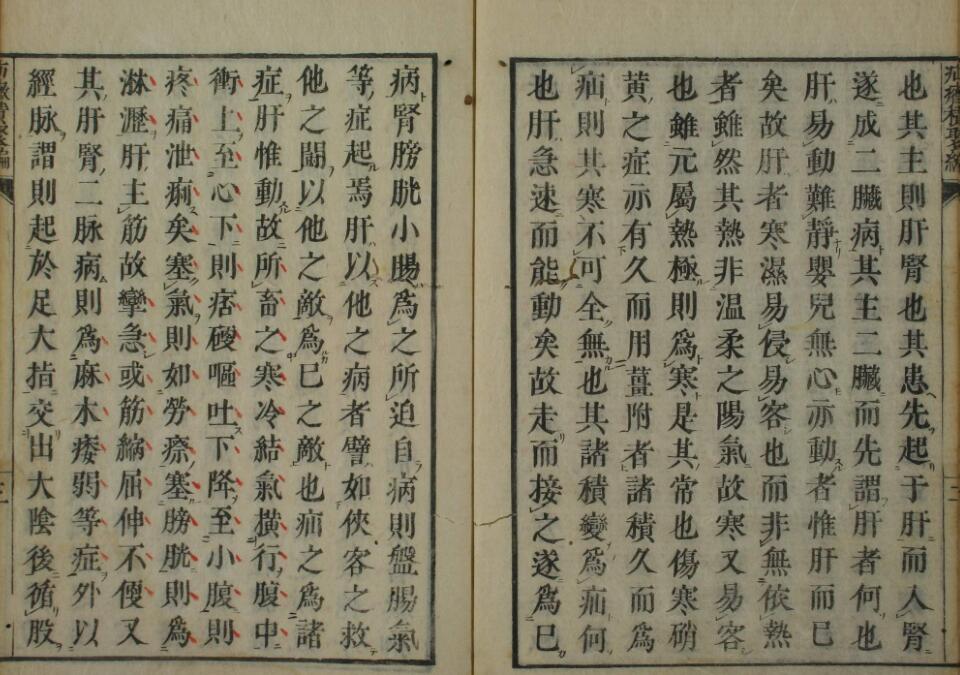 也其主則肝腎也其患先起于肝而入腎
遂成二臟病其主二臟而先謂肝者何也
肝易動難靜嬰兒無心亦動者惟肝而已
矣故肝者寒濕易侵易客也而非無依熱
者雖然其熱非温柔之陽氣故寒又易客
也雖元屬熱極則爲寒是其常也傷寒硝
黄之症亦有久而用薑附者諸積久而爲
疝則其寒不可全無也其諸積變爲疝何
也肝急速而能動矣故走而接之遂爲已
病腎膀胱小腸爲之所迫自病則盤腸氣
等症起焉肝以他之病者譬如俠客之救
他之鬪以他之敵爲已之敵也疝之爲諸
症肝惟動故所畜之寒冷結氣横行腹中
衝上至心下則痞硬嘔吐下降至小腹則
疼痛泄痢矣塞氣則如勞瘵塞膀胱則為
淋瀝肝主筋故攣急或筋縮屈伸不便又
其肝腎二脉病則爲麻木痿弱等症外以
經脉謂則起於足大指交出大陰後循股